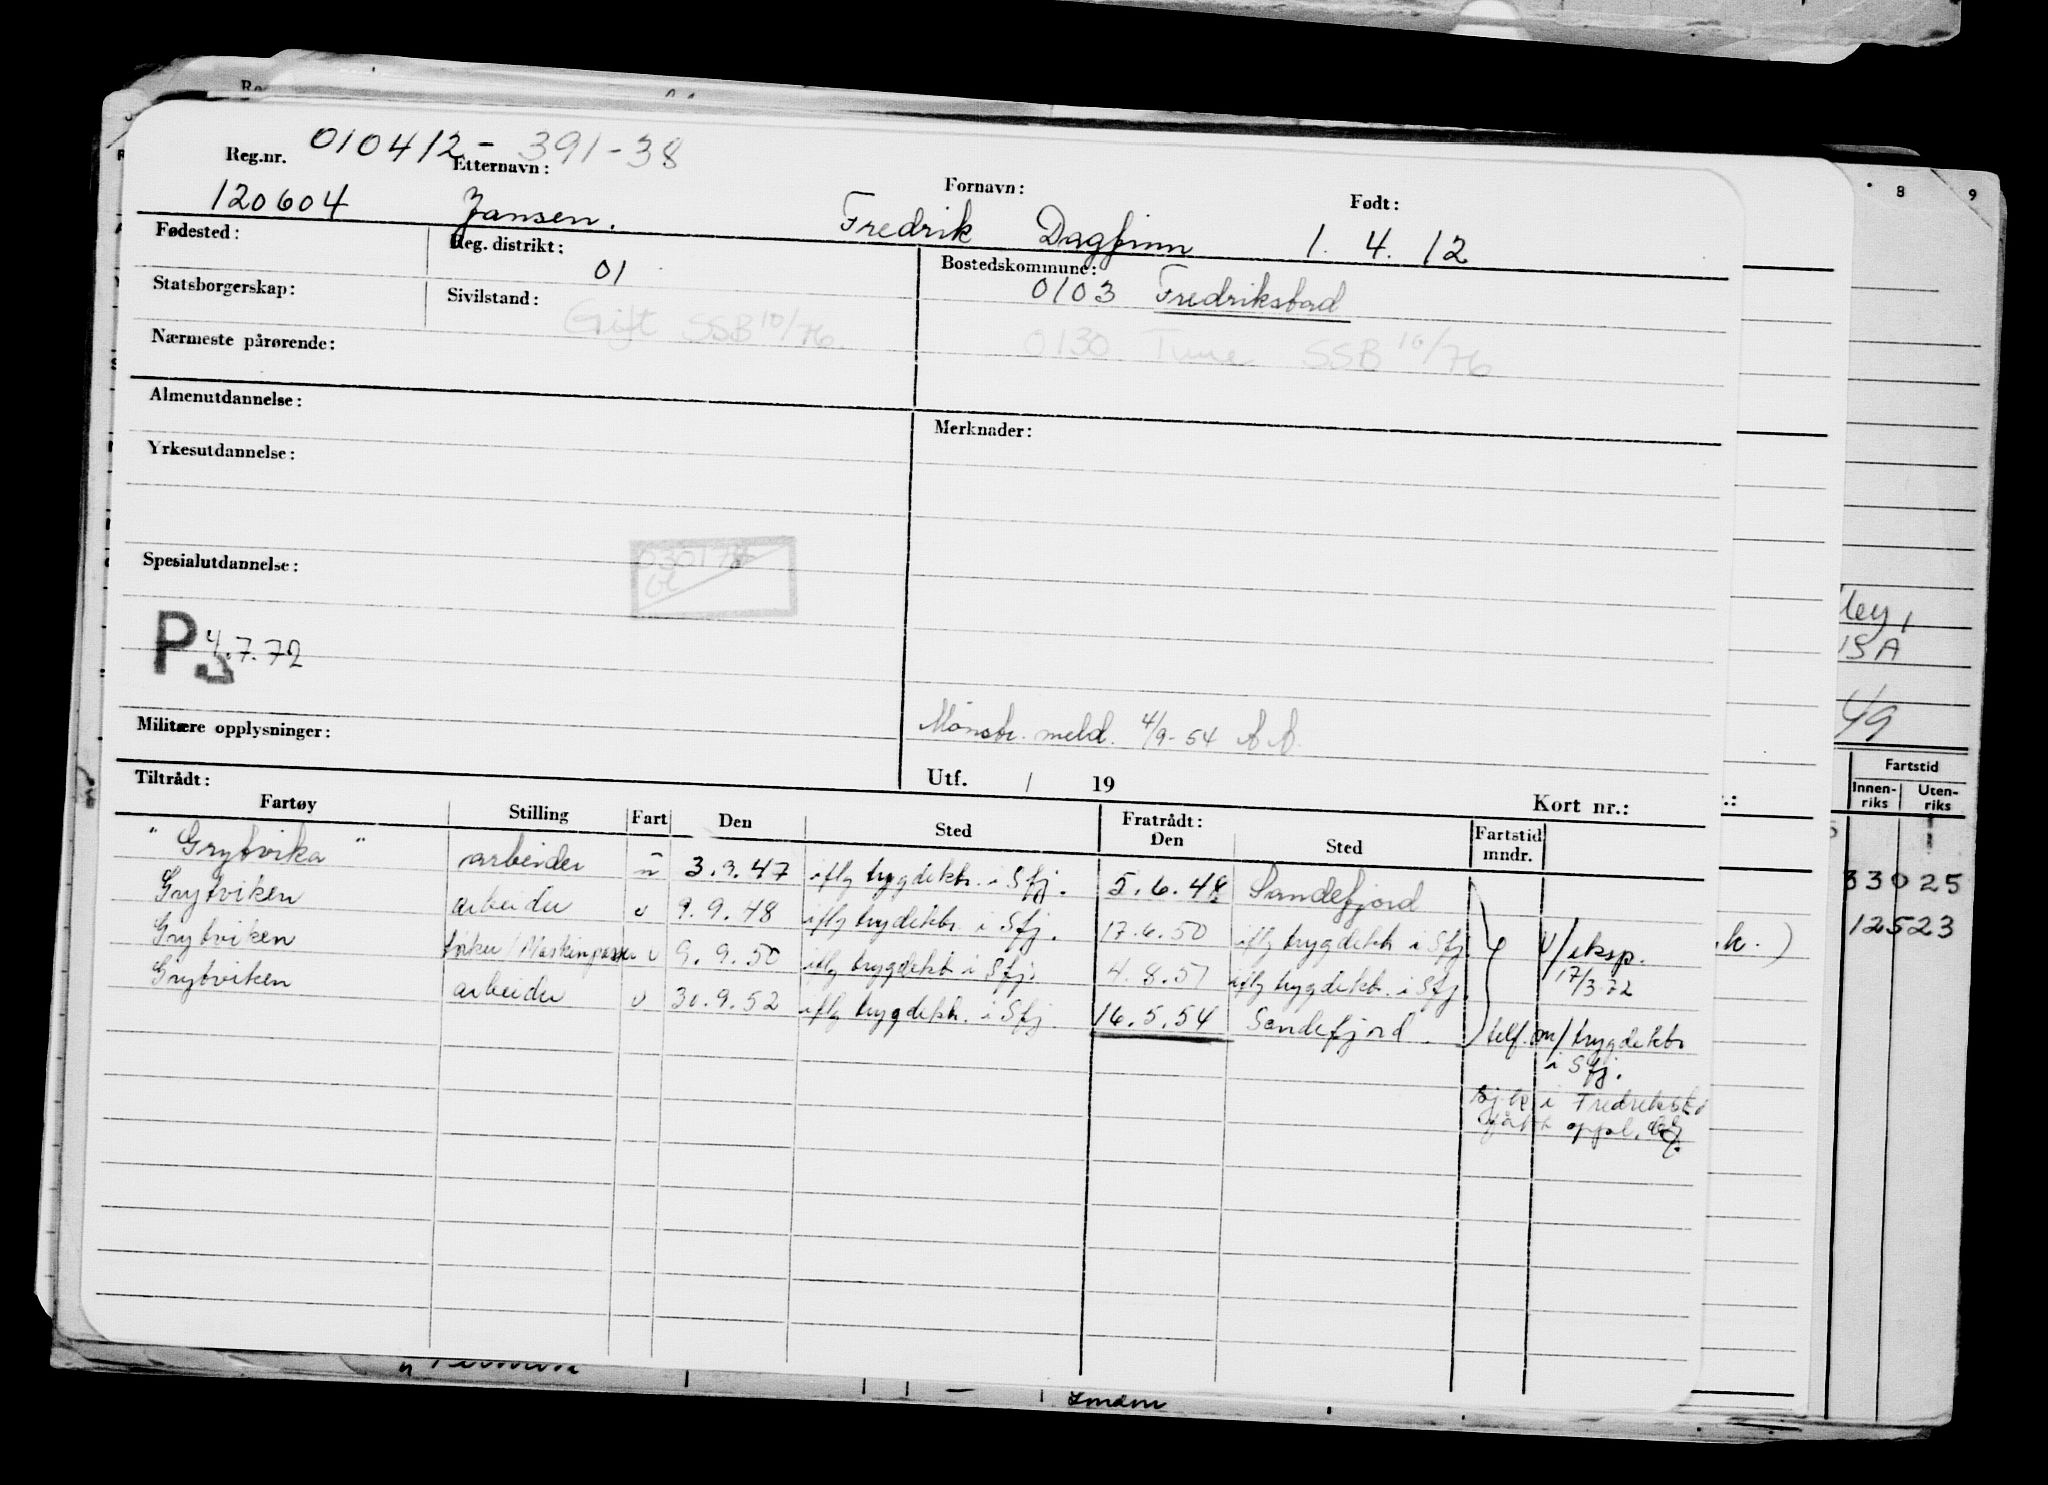 010412-391-38
Reg.nr. Etternavn: Fornavn: Født:
120604 Jansen. Fredrik Dagfinn 1. 4. 12
Fødested: Reg. distrikt: 01 Bostedskommune: 0103 Fredrikstad
Statsborgerskap: Sivilstand: Gift SSB 10/76. 0130 Tune SSB 10/76
Nærmeste pårørende:
Almenutdannelse: Merknader:
Yrkesutdannelse:
Spesialutdannelse:
P 4.7.72
Militære opplysninger: Mønstr. meld. 4/9-54
Tiltrådt: Utf. / 19 Kort nr.:
Fartøy Stilling Fart Den Sted Fratrådt: Den Sted Fartstid mndr.
"Grytvika" arbeider u 3.3.47 iflg trygdektr. i Sfj. 5.6.48 Sandefjord
Grytviken arbeider u 9.9.48 iflg trygdektr. i Sfj. 17.6.50 iflg trygdektr i Sfj.
Grytviken u 9.9.50 iflg trygdektr i Sfj. 4.8.51 iflg trygdektr. i Sfj.
Grytviken arbeider u 30.9.52 iflg trygdektr. i Sfj. 16.5.54 Sandefjord
u/eksp.
17/3.72
telf. m/trygdektr
i Sfj.
i Fredrikstad
oppl.
8 9
ley,
USA
4/9
Fartstid
Innen-riks Uten-riks
330 25
125 23
k. )